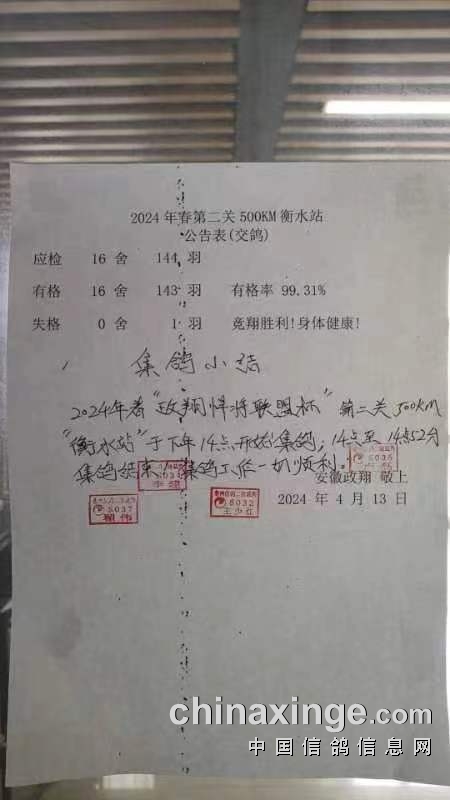 2024年春第二关500KM衡水站
公告表(交鸽)
应检 16 舍 144 羽
有格 16 舍 143 羽 有格率 99.31%
失格 0 舍 1 羽 竞翔胜利!身体健康!
集鸽小结
2024年春"政翔悍将联盟杯"第二关500km
"衡水站"于下午14点开始集鸽,14点至14点52分
集鸽结束,集鸽工作一切顺利。
安徽政翔 敬上
2024 年 4 月 13 日
S037
S032
王少红
chinaxinge.com
中国信鸽信息网